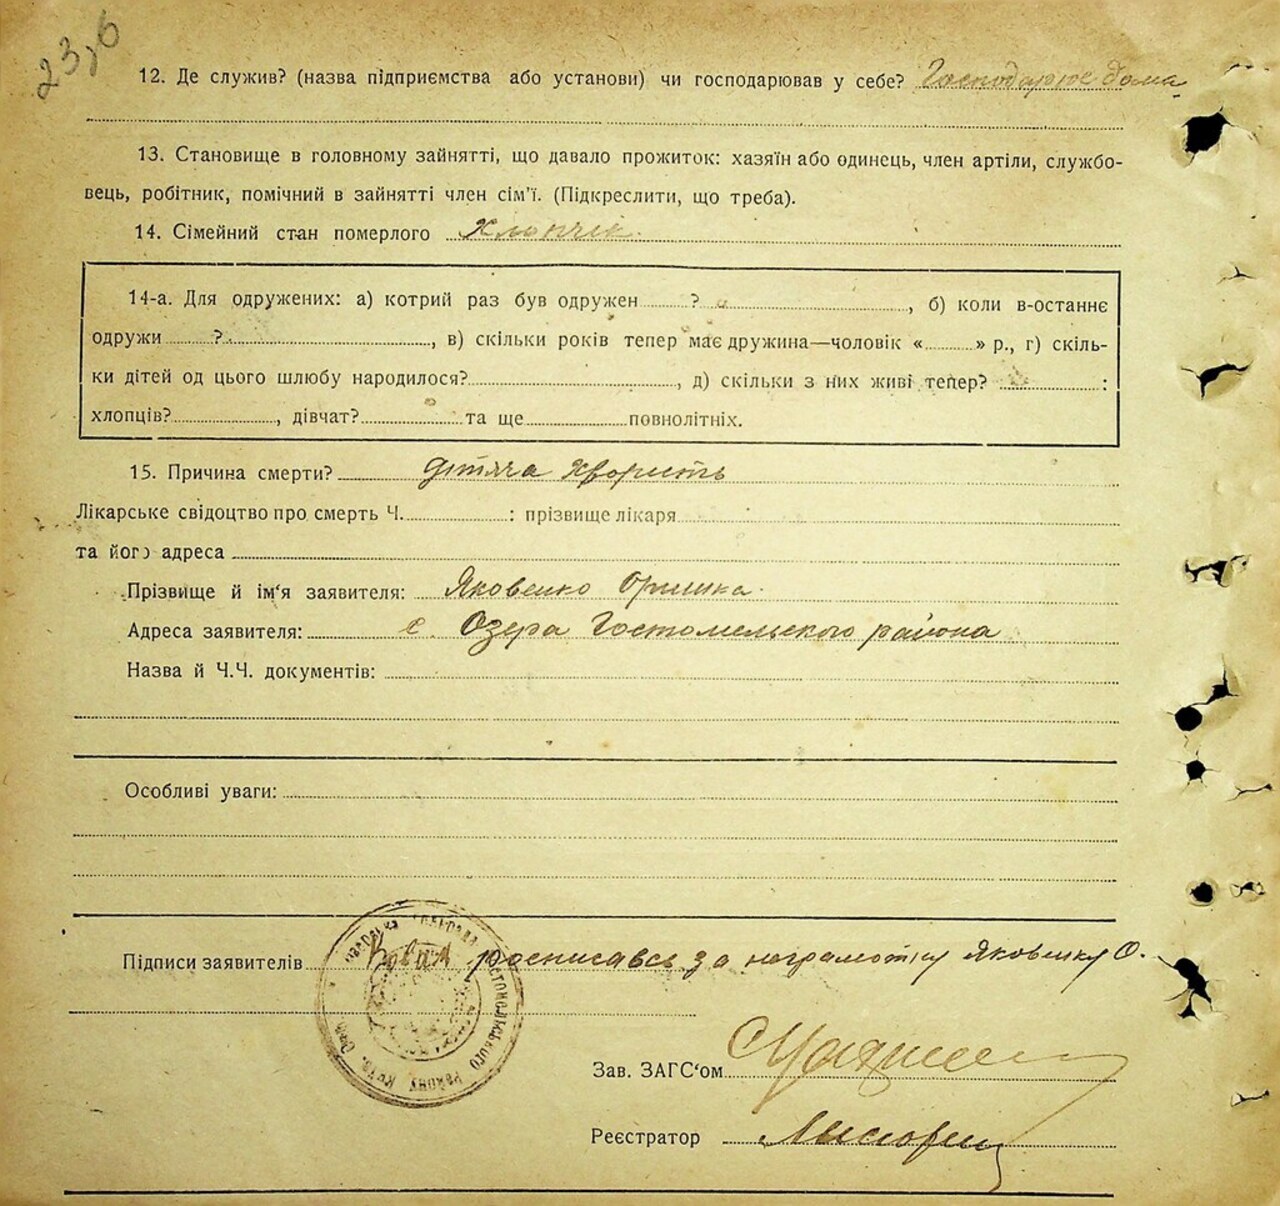 23,6
12. Де служив? (назва підприємства або установи) чи господарював у себе? Господарює дома
13. Становище в головному зайнятті, що давало прожиток: хазяїн або одинець, член артіли, службо-
вець, робітник, помічний в зайнятті член сім'ї. (Підкреслити, що треба).
14. Сімейний стан померлого Хлопчік.
14-а. Для одружених: а) котрий раз був одружен ? , б) коли в-останнє
одружи ? , в) скільки років тепер має дружина—чоловік « » р., г) скіль-
ки дітей од цього шлюбу народилося? , д) скільки з них живі тепер? :
хлопців? , дівчат? та ще повнолітніх.
15. Причина смерти? дітяча хвористь
Лікарське свідоцтво про смерть Ч. : прізвище лікаря
та його адреса
Прізвище й ім'я заявителя: Яковенко Оришка.
Адреса заявителя: с. Озера Гостомельского района
Назва й Ч.Ч. документів:
Особливі уваги:
Підписи заявителів Ковал росписавсь за награмотну Яковенку О.
Гостомельського району Київ.
Зав. ЗАГС'ом
Реєстратор